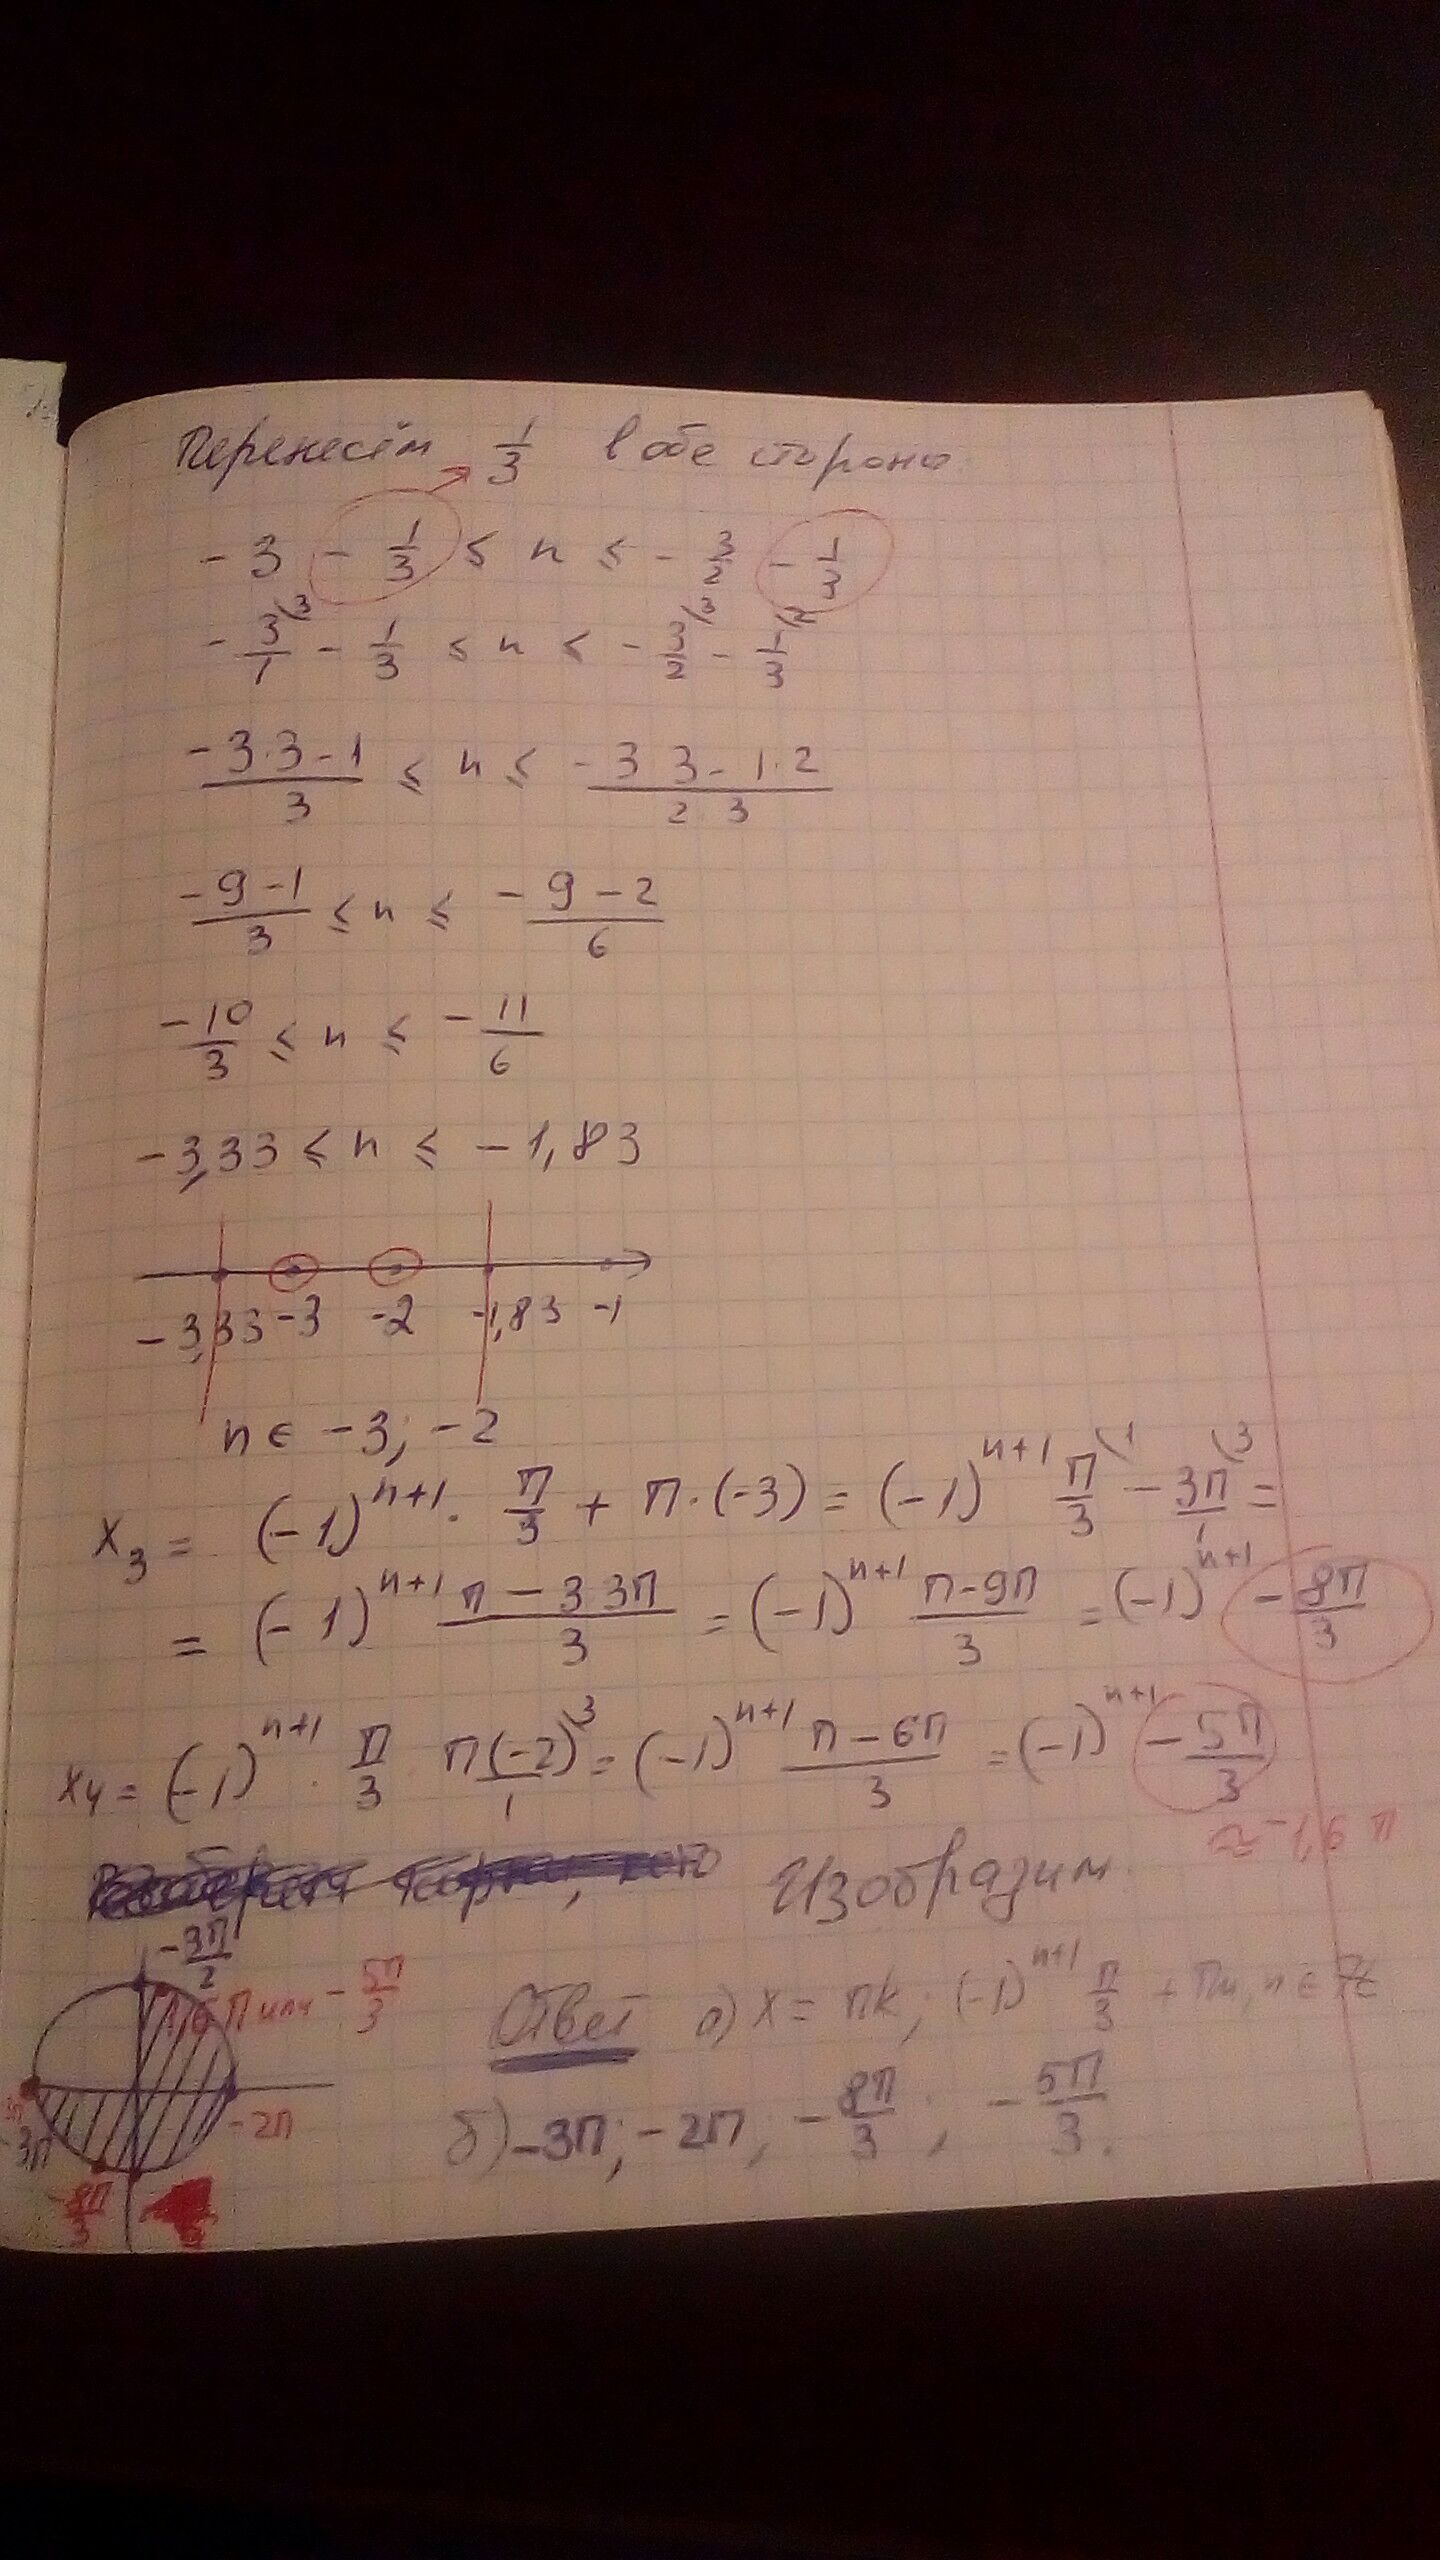 Перенесём 1/3 в обе стороны
- 3 - 1/3 ≤ n ≤ - 3/2 - 1/3
- 3/1 \3 - 1/3 ≤ n ≤ - 3/2 \3 - 1/3 \2
(-3·3-1)/3 ≤ n ≤ -(3 3 - 1·2)/(2·3)
(-9-1)/3 ≤ n ≤ -(9-2)/6
-10/3 ≤ n ≤ -11/6
-3,33 ≤ n ≤ -1,83
-3,33 -3 -2 -1,83 -1
n ∈ -3; -2
x₃ = (-1)ⁿ⁺¹ · π/3 + π·(-3) = (-1)ⁿ⁺¹ π/3 \1 - 3π/1 \3 =
= (-1)ⁿ⁺¹ (π - 3·3π)/3 = (-1)ⁿ⁺¹ (π-9π)/3 = (-1)ⁿ⁺¹ - 8π/3
x₄ = (-1)ⁿ⁺¹ · π/3 · π(-2)/1 \3 = (-1)ⁿ⁺¹ (π-6π)/3 = (-1)ⁿ⁺¹ - 5π/3
≈ -1,6 π
Изобразим
1,6 π или - 5π/3
-2π
-3π
-8π/3
Ответ а) x = πk; (-1)ⁿ⁺¹ π/3 + πn, n ∈ Z
б) -3π; -2π, -8π/3; -5π/3.